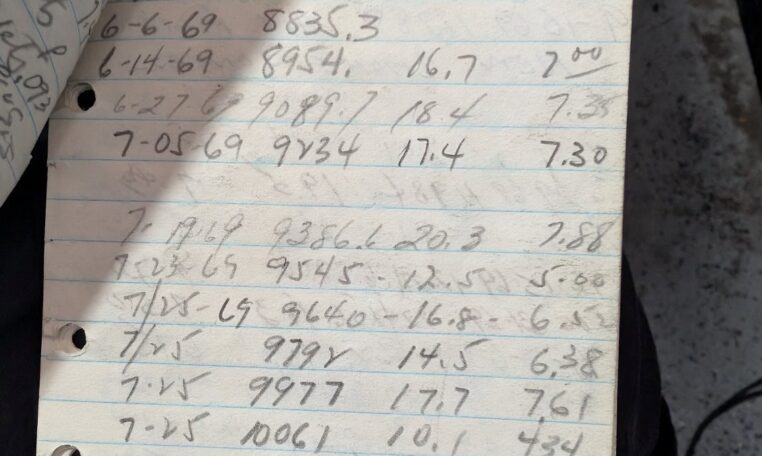 6-6-69 8835.3
6-14-69 8954. 16.7 7 00
6-27 69 9089.7 18.4 7.35
7-05-69 9234 17.4 7.30
7-19-69 9386.6 20.3 7.88
7-23-69 9545 - 12.5 5.00
7/25-69 9640 - 16.8 -
7/25 9792 14.5 6.38
7-25 9977 17.7 7.61
7-25 10061 10.1 4.34